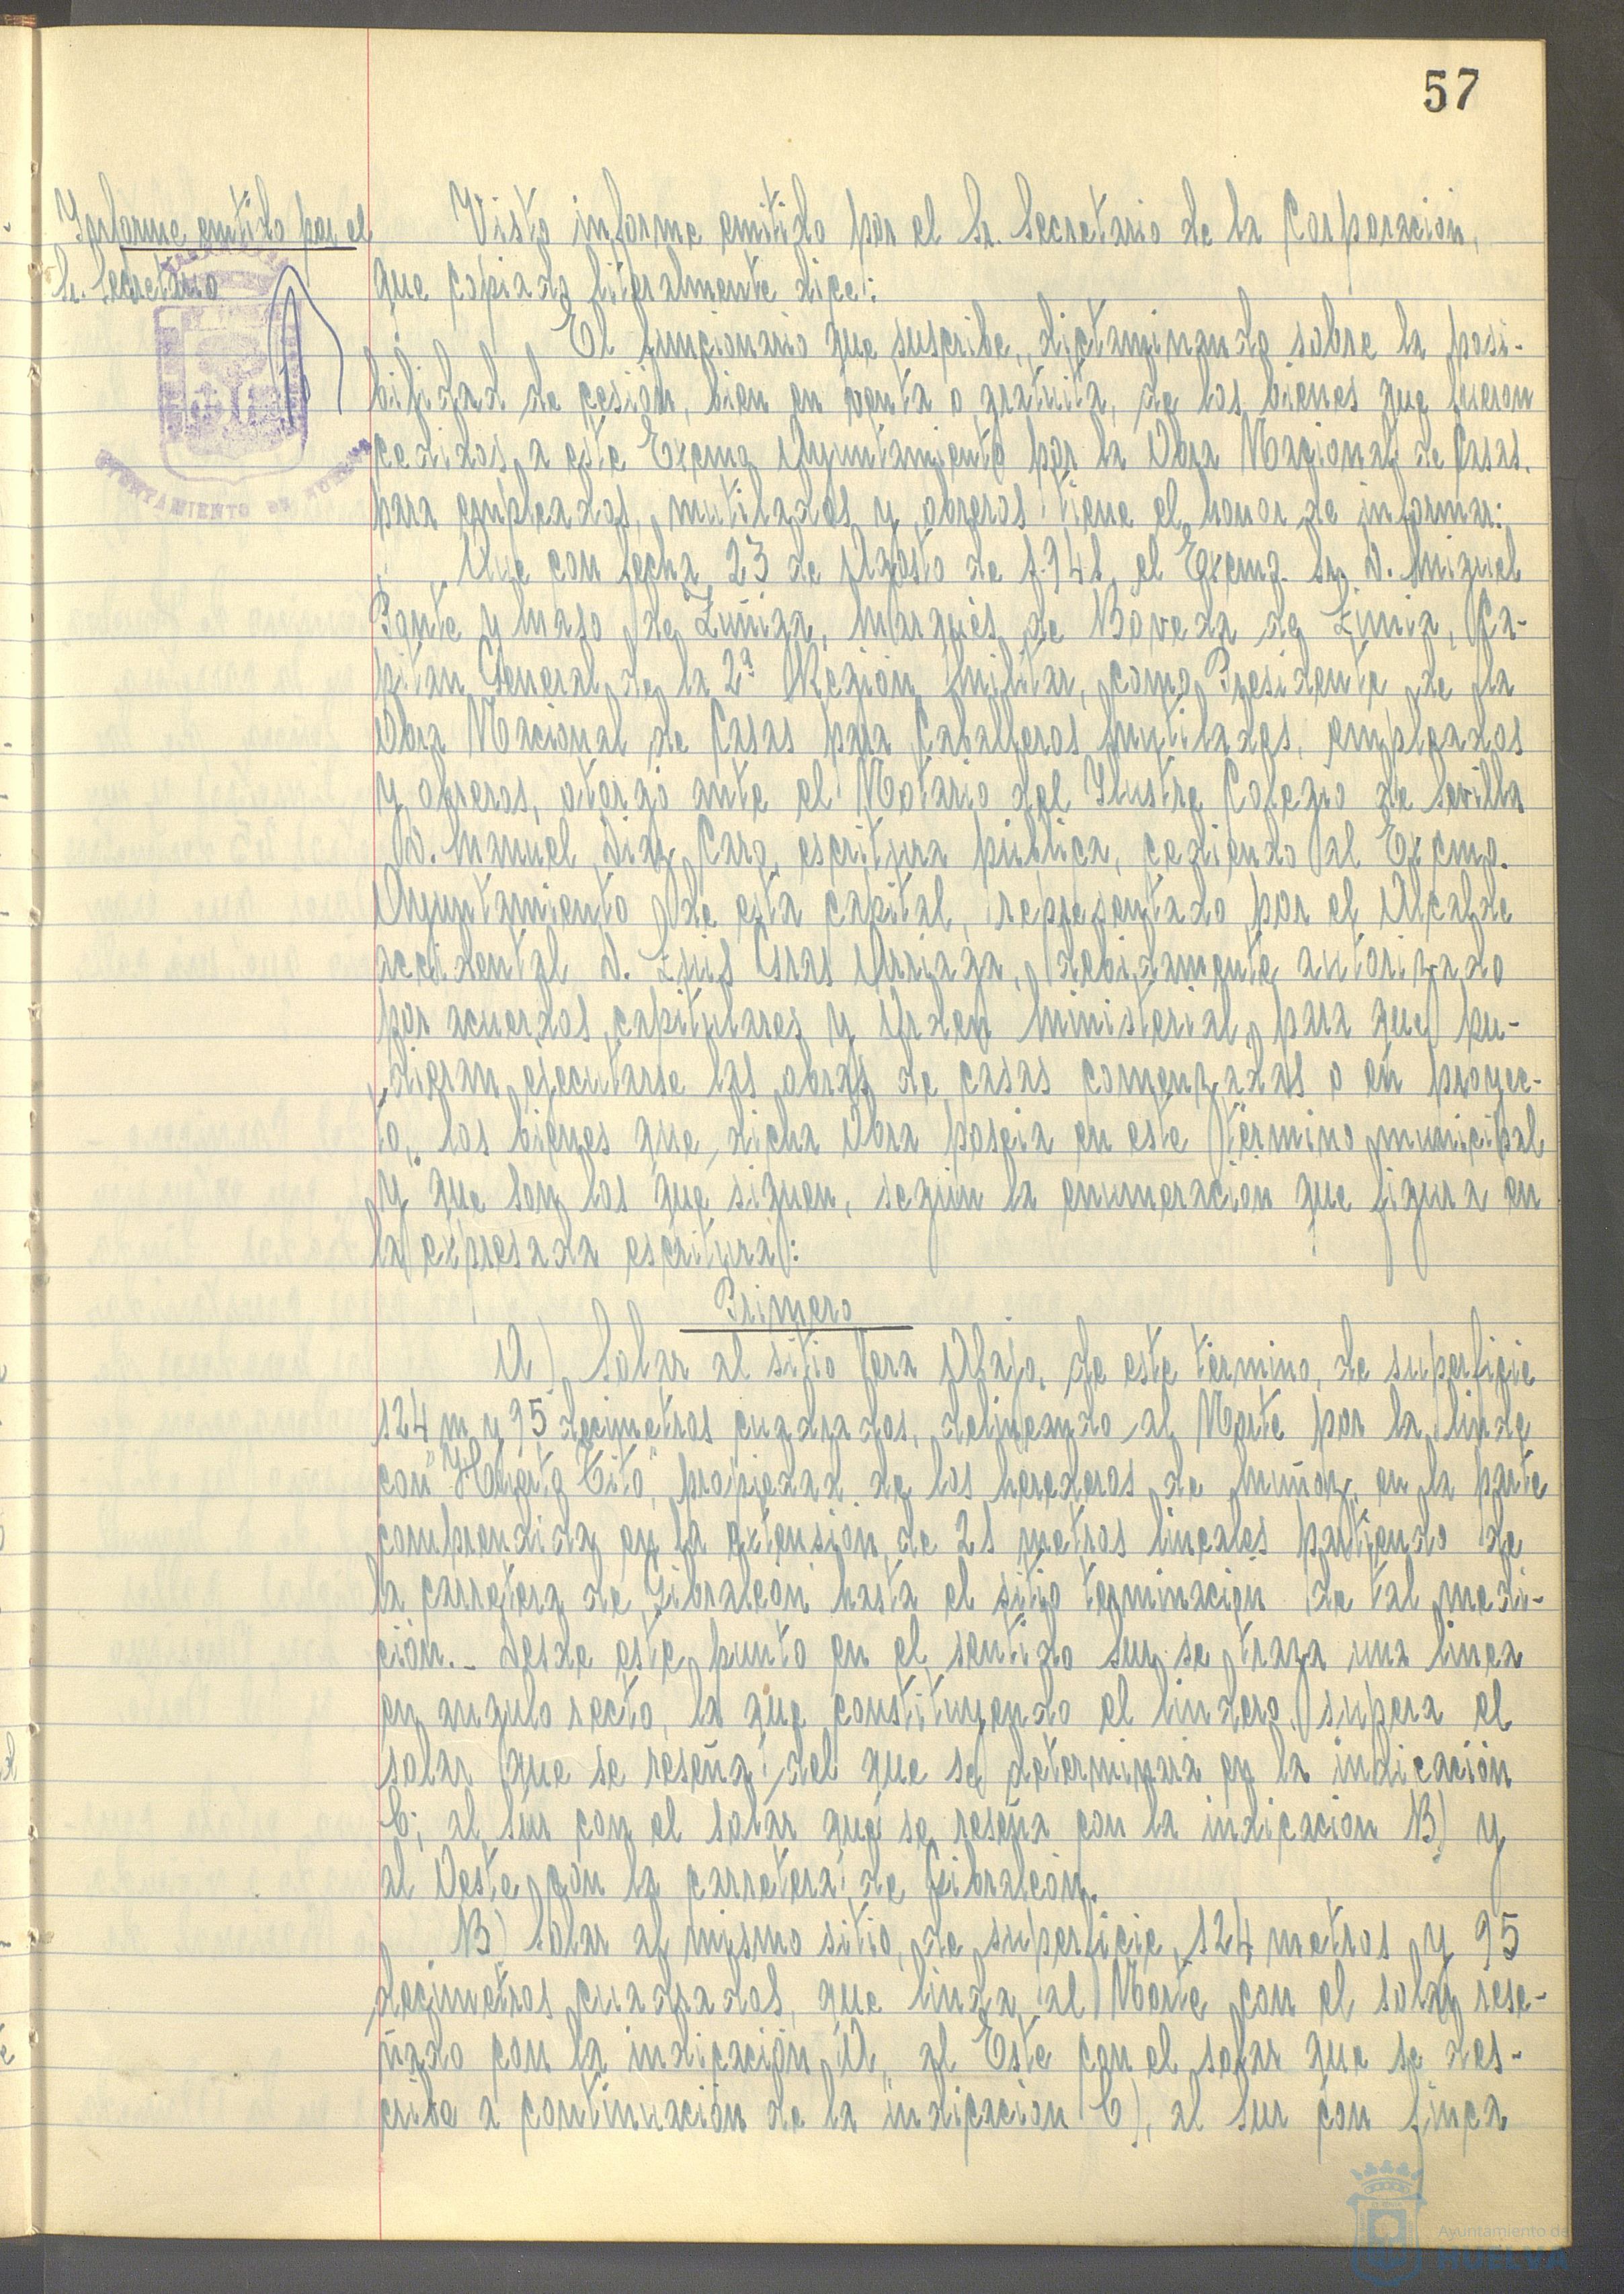 57
Informe emitido por el
Sr. Secretario
AYUNTAMIENTO DE HUELVA
Visto informe emitido por el Sr. Secretario de la Corporación,
que copiado literalmente dice:
El funcionario que suscribe, dictaminando sobre la posi-
bilidad de cesión, bien en venta o gratuita, de los bienes que fueron
cedidos a este Excmo Ayuntamiento por la Obra Nacional de Casas
para empleados, mutilados y obreros tiene el honor de informar:
Que con fecha 23 de Agosto de 1.941, el Excmo. Sr. D. Miguel
Ponte y Manso de Zúñiga, Marqués de Bóveda de Limia, Ca-
pitán General de la 2ª Región Militar, como Presidente de la
Obra Nacional de Casas para Caballeros Mutilados, empleados
y obreros, otorgó ante el Notario del Ilustre Colegio de Sevilla
D. Manuel Díaz Caro, escritura pública, cediendo al Excmo.
Ayuntamiento de esta capital, representado por el Alcalde
accidental D. Luis Gras Arriaga, debidamente autorizado
por acuerdos capitulares y Orden Ministerial, para que pu-
dieran ejecutarse las obras de casas comenzadas o en proyec-
to, los bienes que dicha Obra poseía en este término municipal
y que son los que siguen, según la enumeración que figura en
la expresada escritura:
Primero
A) Solar al sitio Vera Abajo, de este término, de superficie
124 m y 95 decimetros cuadrados, delineando al Norte por la linde
con "Huerto Tito", propiedad de los herederos de Muñoz, en la parte
comprendida en la extensión de 21 metros lineales partiendo de
la carretera de Gibraleón hasta el sitio terminación de tal medi-
ción.- Desde este punto en el sentido Sur se traza una linea
en angulo recto, la que constituyendo el lindero, supera el
solar que se reseña del que se determinará en la indicación
C; al Sur con el solar que se reseña con la indicación B) y
al Oeste con la carretera de Gibraleón.
B) Solar al mismo sitio, de superficie 124 metros y 95
decimetros cuadrados, que linda al Norte con el solar rese-
ñado con la indicación A, al Este con el solar que se des-
cribe a continuación de la indicación C), al Sur con finca
Ayuntamiento de
HUELVA